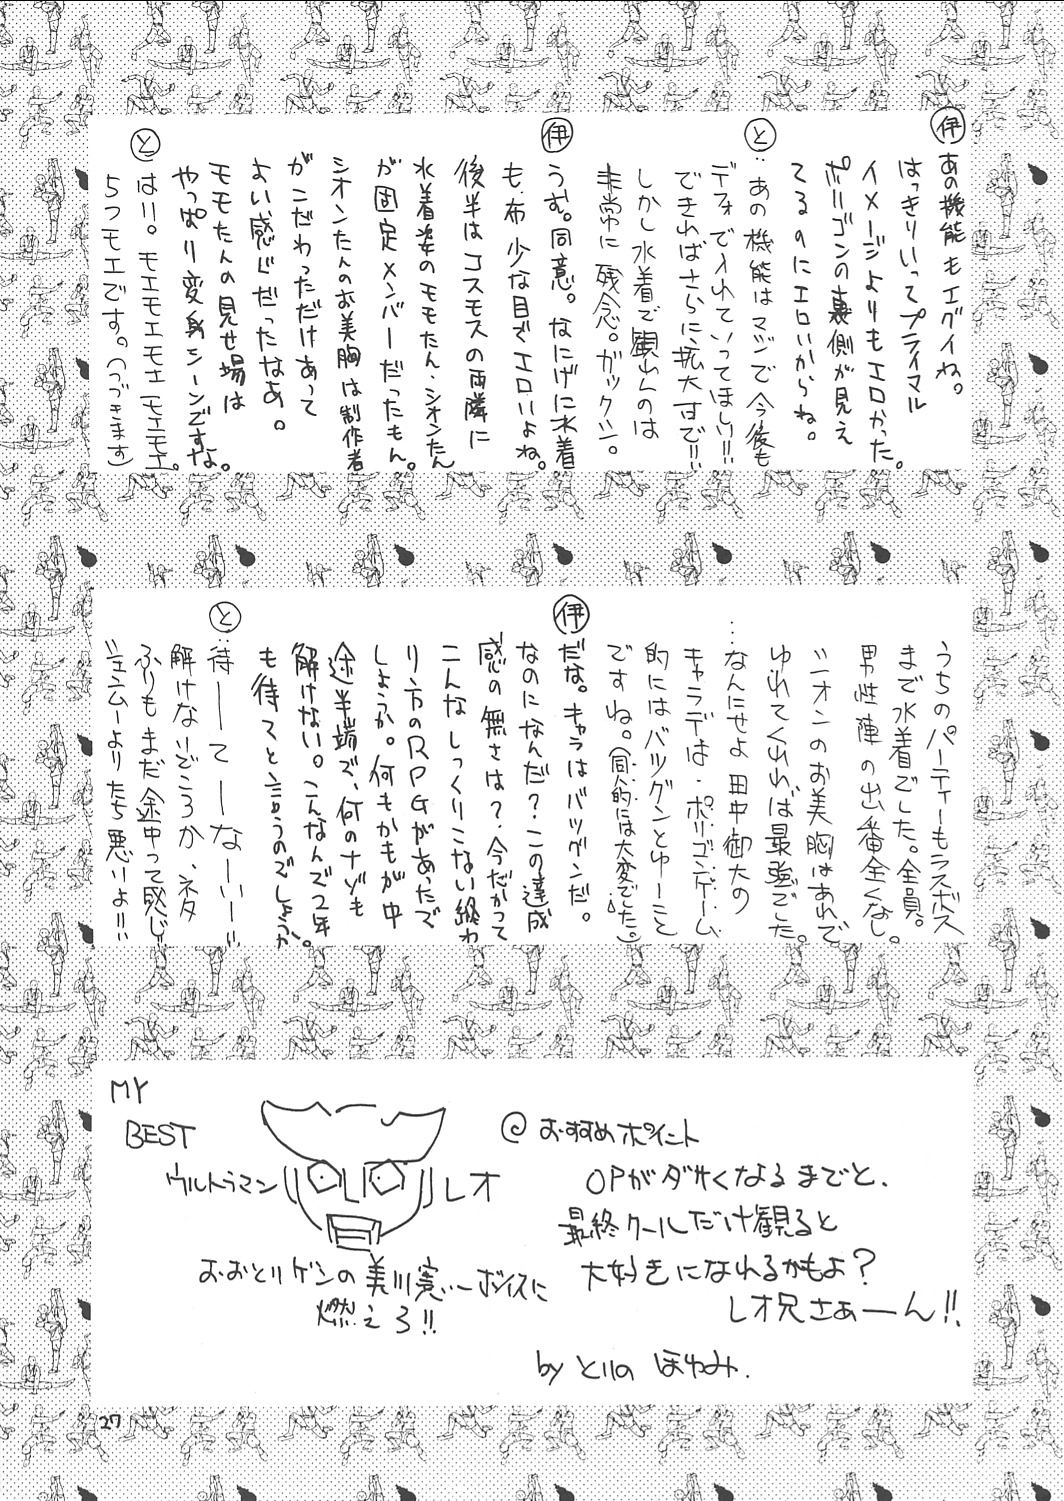 伊
あの機能もエグイね。
はっきりいってプライマル
イメージよりもエロかった。
ポリゴンの裏側が見え
てるのにエロいからね。
と
‥あの機能はマジで今後も
デフォでいれていってほしい!!
できればさらに拡大せで!!
しかし水着で観れんのは
非常に残念。ガックシ。
伊
うむ。同意。なにげに水着
も、布少な目でエロいよね。
後半はコスモスの両隣に
水着姿のモモたん、シオンたん
が固定メンバーだったもん。
シオンたんのお美胸は制作者
がこだわっただけあって
よい感じだったなあ。
モモたんの見せ場は
やっぱり変身シーンですよ。
と
はい。モエモエモエモエモエ。
5つモエです。(つづきます)
うちのパーティーもラスボス
まで水着でした。全員。
男性陣の出番全くなし。
シオンのお美胸はあれで
ゆれてくれれば最強でした。
…なんにせよ田中御大の
キャラデは、ポリゴンゲーム
的にはバツグンとゆーこと
ですね。(同人的には大変でした。)
伊
だな。キャラはバツグンだ。
なのになんだ?この達成
感の無さは?今だかつて
こんなしっくりこない終わ
り方のRPGがあったで
しょうか。何もかもが中
途半端で、何のナゾも
解けない。こんなんで2年
も待てと言うのでしょうか
と
‥待ーーてーーなーい!!
解けないどころか、ネタ
ふりもまだ途中って感じ
シェンムーよりたち悪いよ!!
MY
BEST
ウルトラマン レオ
おおとりゲンの美川寛いーボイスに
燃えろ!!
@おすすめポイント
OPがダサくなるまでと、
最終クールだけ観ると
大好きになれるかもよ?
レオ兄さぁーん!!
by とりの ほゆみ.
27